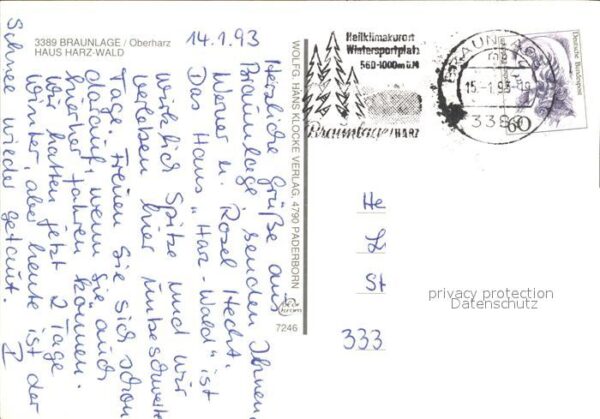 3389 BRAUNLAGE / Oberharz
HAUS HARZ-WALD
14.1.93
Herzliche Grüße aus
Braunlage senden Ihnen
Werner u. Rosel Hecht.
Das Haus "Harz-Wald" ist
wirklich Spitze und wir
verleben hier unbeschwerte
Tage. Freuen Sie sich schon
darauf, wenn Sie auch
hierher fahren können.
Wir hatten jetzt 2 Tage
Winter, aber heute ist der
Schnee wieder getaut.
WOLFG. HANS KLOCKE VERLAG, 4790 PADERBORN
7246
Heilklimakurort
Wintersportplatz
560-1000m ü.M
Braunlage/HARZ
BRAUNLAGE
15.-1.93-19
3389
60
Deutsche Bundespost
He
St
333
privacy protection
Datenschutz